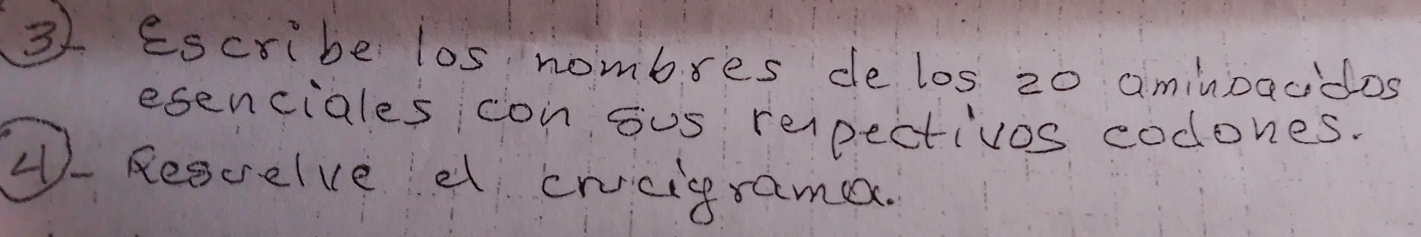 3- Escribe los nombres de los 20 aminoacidos
esenciales con sus respectivos codones.
4- Resuelve el crucigrama.